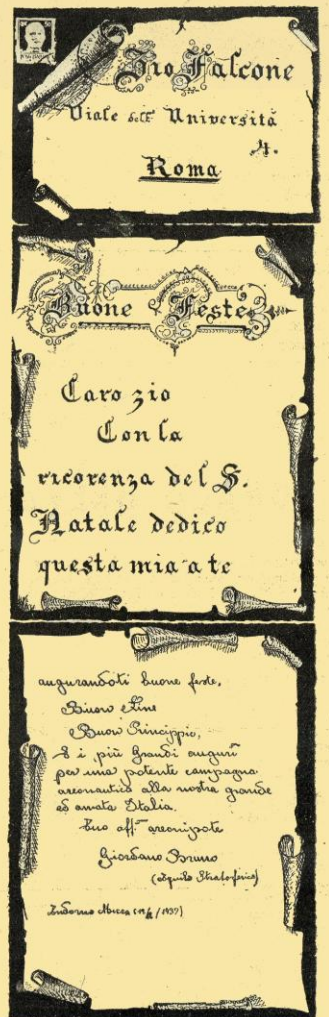 Zio Falcone
Viale dell' Università
4.
Roma
Buone Feste
Caro zio
Con la
ricorenza del S.
Natale dedico
questa mia a te
augurandoti buone feste,
Buon Fine
Buon Princippio,
E i più Grandi auguri
per una potente campagna
areonautica alla nostra grande
ed amata Italia.
tuo aff. areonipote
Giordano Bruno
(Aquila Stratosferica)
Andorno Micca
1937)